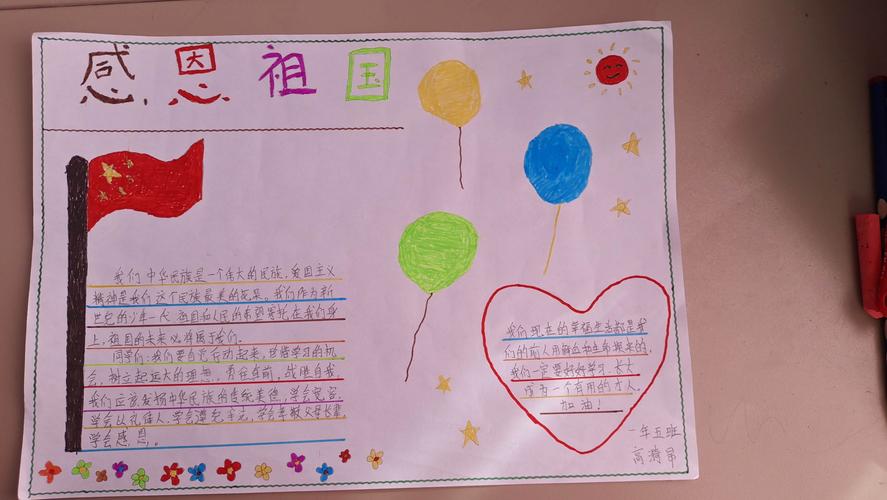 感恩祖国
我们中华民族是一个伟大的民族，爱国主义
精神是我们这个民族最美的花朵。我们作为新
世纪的少年一代，祖国和人民的希望寄托在我们身
上，祖国的未来必将属于我们。
同学们：我们要自觉行动起来，珍惜学习的机
会，树立起远大的理想，勇往直前，战胜自我，
我们应该发扬中华民族的传统美德，学会宽容，
学会以礼待人，学会遵纪守法，学会孝敬父母长辈，
学会感恩。
我们现在的幸福生活都是我
们的前人用鲜血和生命换来的，
我们一定要好好学习，长大
成为一个有用的人，
加油！
一年五班
高